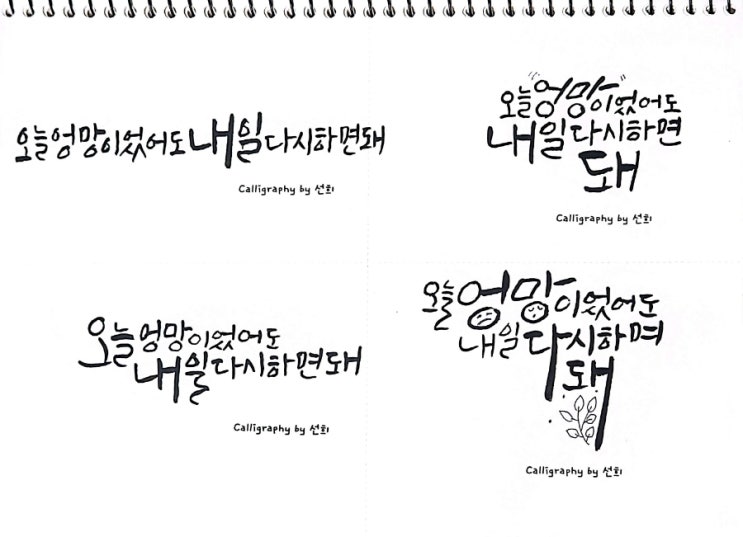 오늘 엉망이었어도 내일 다시하면돼
Calligraphy by 선희
오늘 엉망이었어도
내일 다시하면
돼
Calligraphy by 선희
오늘 엉망이었어도
내일 다시하면돼
Calligraphy by 선희
오늘 엉망이었어도
내일 다시하면
돼
Calligraphy by 선희